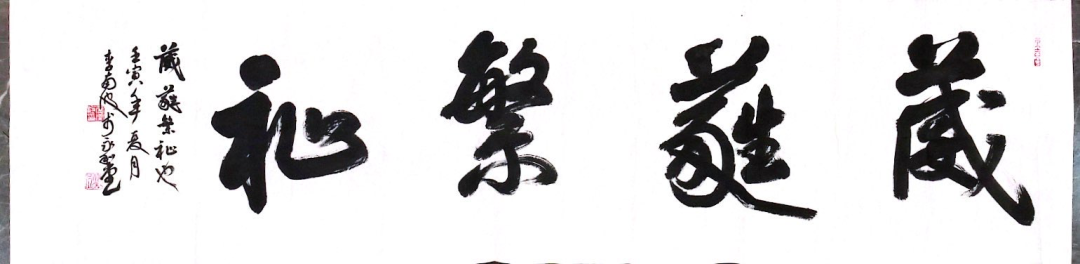 葳蕤繁祉
葳蕤繁祉也
壬寅年夏月
李南